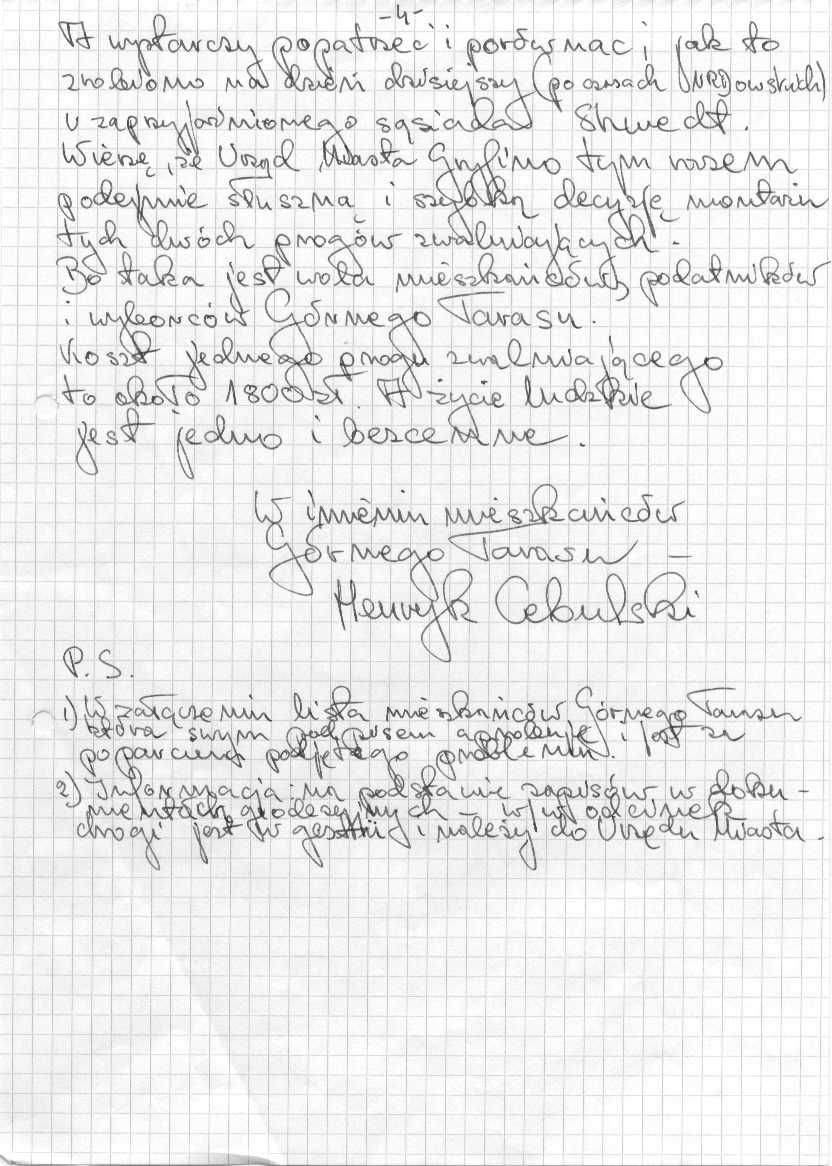 -4-
A wystarczy popatrzeć i porównać, jak to
zrobiono na dzień dzisiejszy (po czasach NRDowskich)
u zaprzyjaźnionego sąsiada Shwedt.
Wierzę, że Urząd Miasta Gryfino tym razem
podejmie słuszną i szybką decyzję montażu
tych dwóch progów zwalniających.
Bo taka jest wola mieszkańców, podatników
i wyborców Górnego Tarasu.
Koszt jednego progu zwalniającego
to około 1800 zł. A życie ludzkie
jest jedno i bezcenne.
W imieniu mieszkańców
Górnego Tarasu –
Henryk Cebulski
P.S.
1) W załączeniu lista mieszkańców Górnego Tarasu
która swym podpisem aprobuje i jest za
poparciem podjętego problemu.
2) Informacja: na podstawie zapisów w doku-
mentach geodezyjnych – w/w odcinek
drogi jest w gestii i należy do Urzędu Miasta.